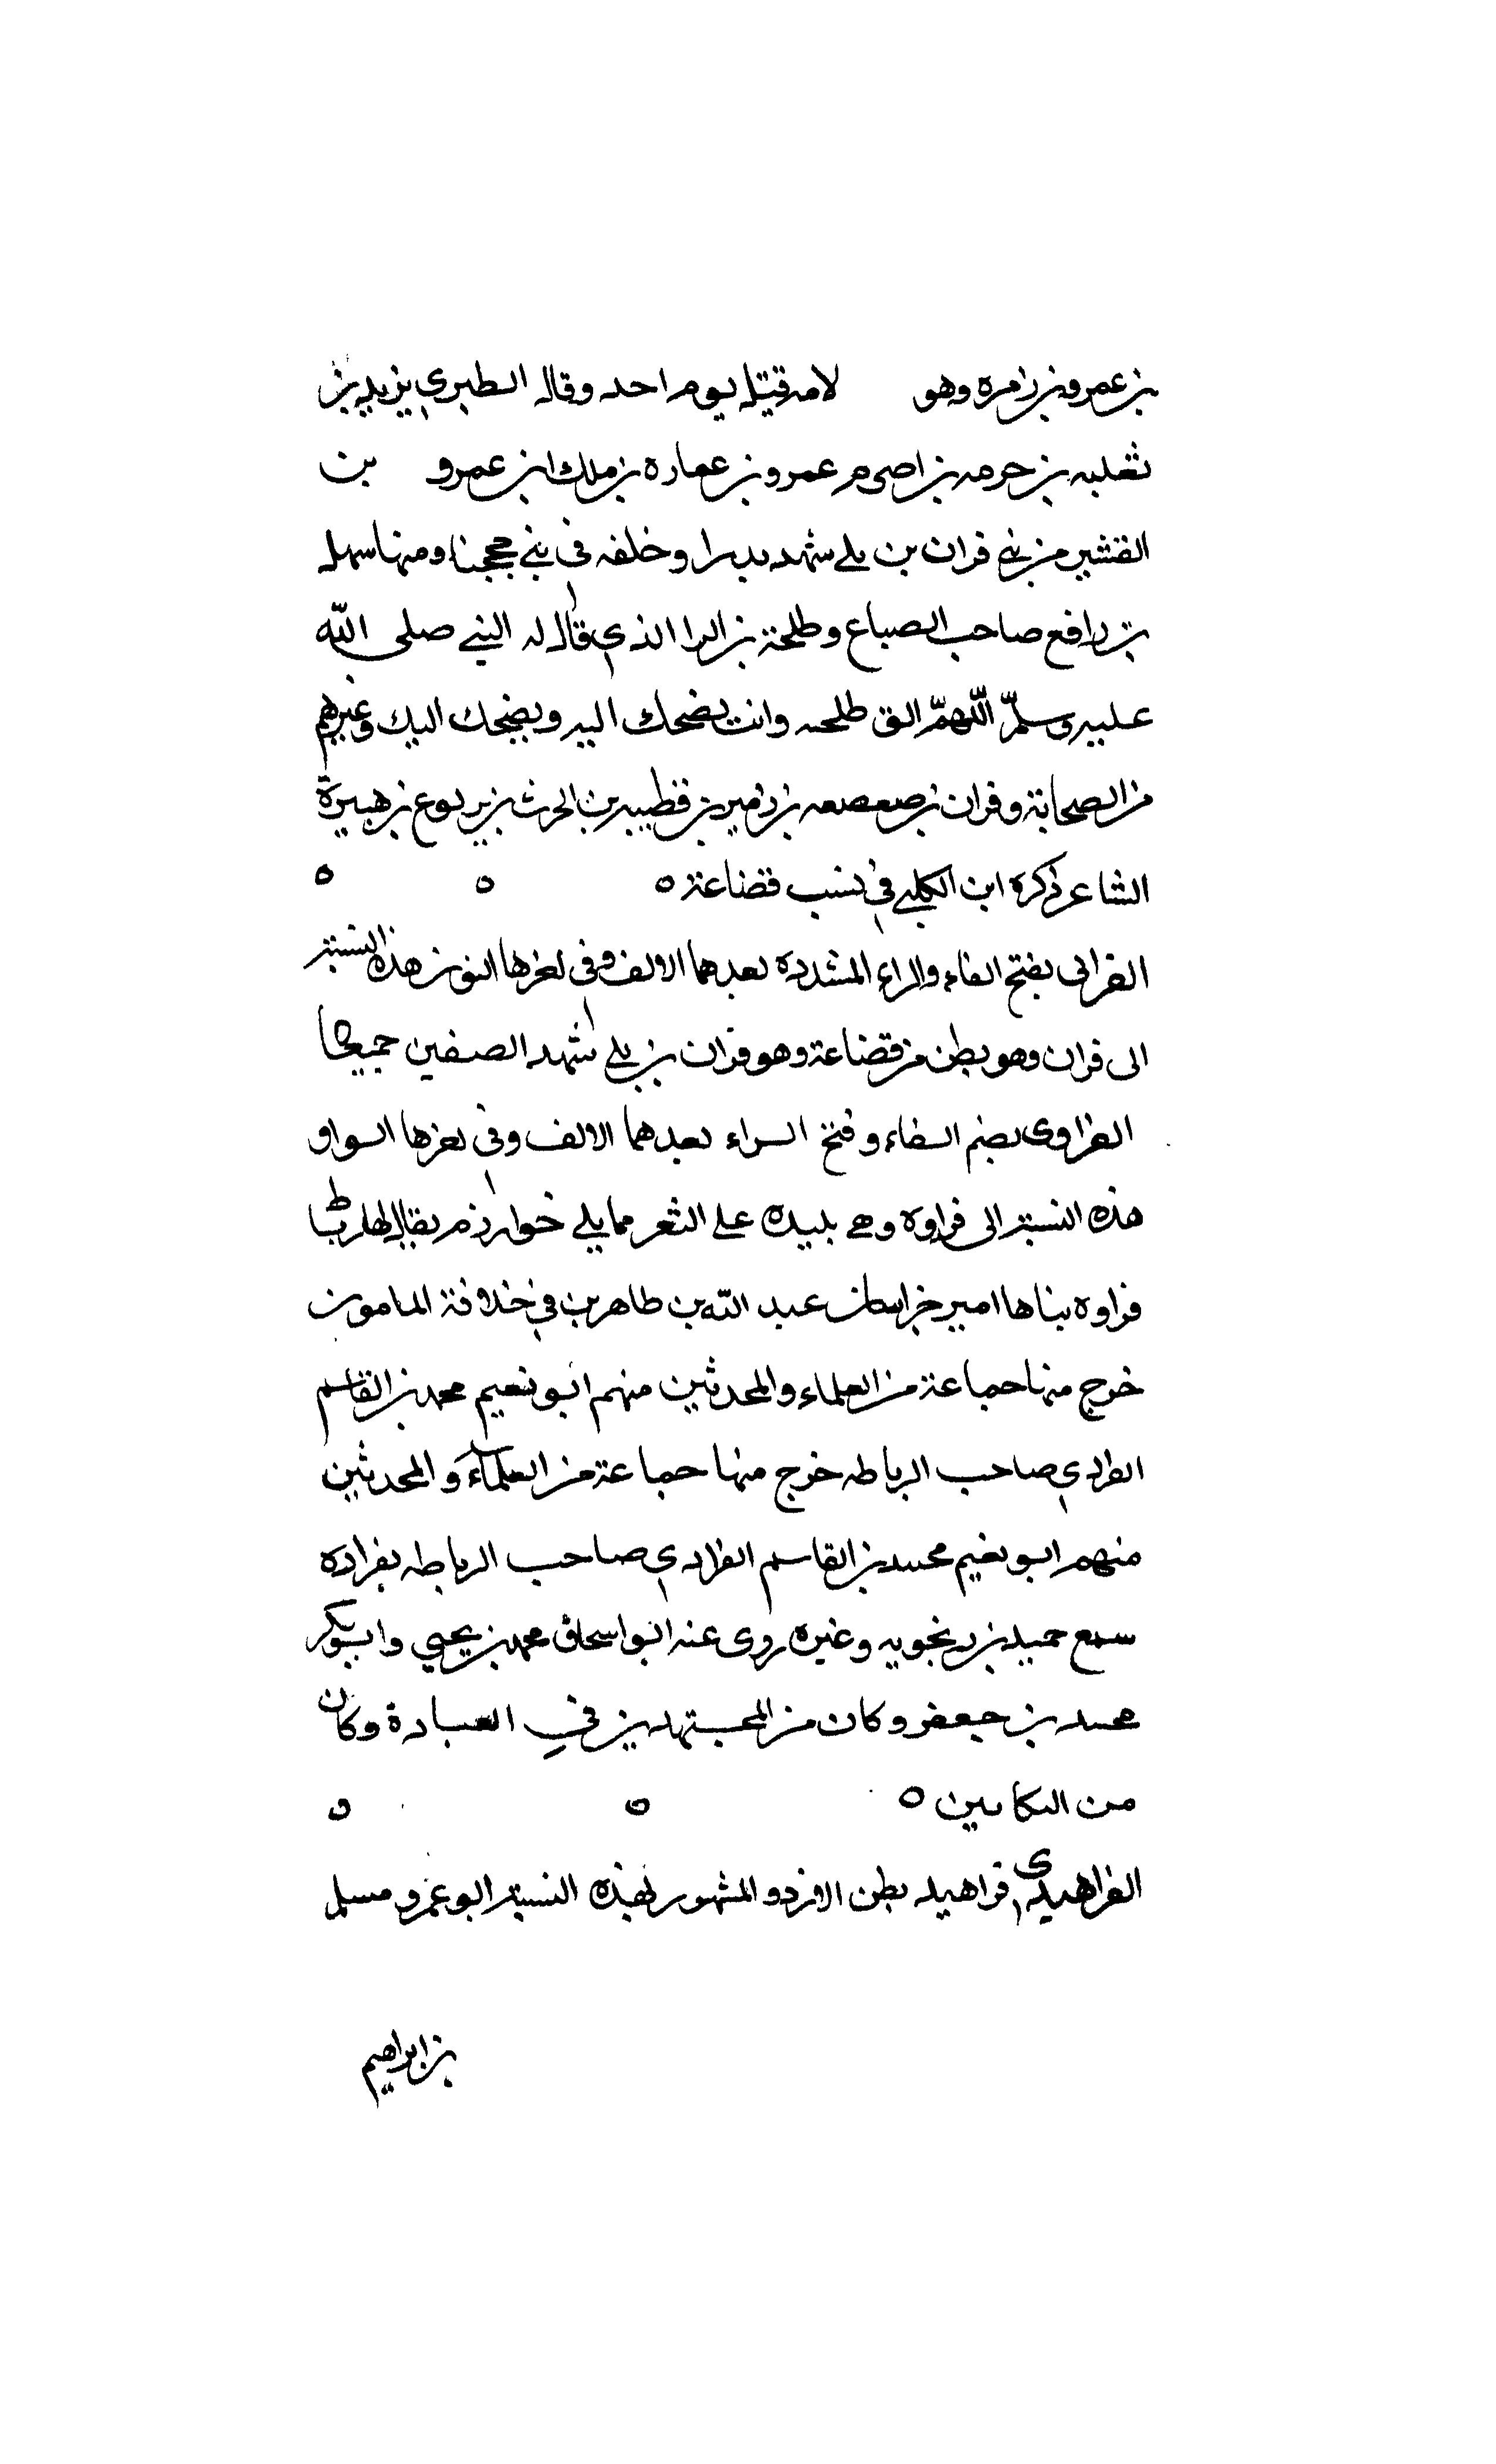 بن عمرو بن زامره وهو لامه قتيل يوم احد وقال الطبري يزيد بن
ثعلبه بن حرمه بن اصرم عمرو بن عماره بن ملك ابن عمرو بن
القشير من بني فران بن بلي شهد بدرا وخلفه في بني جحجبا ومنها سهل
بن رافع صاحب الصاع وطلحة بن البرا الذي قال له النبي صلى الله
عليه وسلم اللهم الق طلحه وانت يضحك اليه ويضحك اليك وغيرهم
من الصحابة وفران بن صعصعه بن زمير بن قطيبه بن الحرث بن يربوع بن هبيرة
الشاعر ذكره ابن الكلبي في نسب قضاعة ٥ ٥ ٥
الفرانى بفتح الفاء والراء المشدده بعدهما الالف وفي اخرها النون هذه النسبة
الى فران وهو بطن من قضاعة وهو فران بن بلي شهد الصفين جميعا
الفراوى بضم الفاء وفتح الراء بعدهما الالف وفى اخرها الواو
هذه النسبة الى فراوه وهي بليده على الثغر مما يلي خوارزم يقال لها رباط
فراوه بناها امير خراسان عبد الله بن طاهر بن في خلافة المامون
خرج منها جماعة من العلماء والمحدثين منهم ابو نعيم محمد بن القاسم
الفرادي صاحب الرباط خرج منها جماعة من العلماء والمحدثين
منهم ابو نعيم محمد بن القاسم الفرادي صاحب الرباط بفراده
سمع حميد بن زنجويه وغيره روى عنه ابو اسحاق محمد بن يحيي وابو بكر
محمد بن جعفر وكان من المجتهدين في العبادة وكان
من البكايين ٥ ٥ ٥
الفراهيدى فراهيد بطن الازد والمشهور بهذه النسبة ابو عمرو مسلم
بن ابراهيم